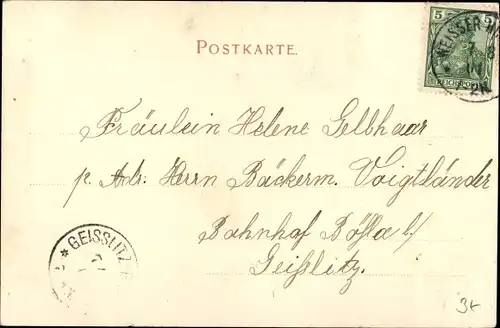 POSTKARTE.
5
WEISSER
REICHSPOST
Fräulein Helene Gelbhaar
p. Adr. Herrn Bäckerm. Voigtländer
Bahnhof Böhla b/
Geißlitz.
* GEISSLITZ
3t